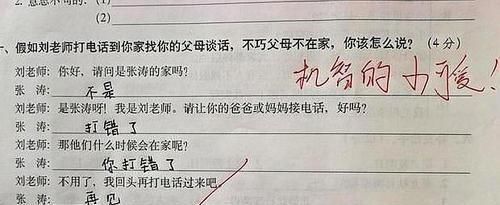 (1)
(2)
一、假如刘老师打电话到你家找你的父母谈话，不巧父母不在家，你该怎么说？（4分）
刘老师：你好，请问是张涛的家吗？
张 涛：不是
刘老师：是张涛呀！我是刘老师。请让你的爸爸或妈妈接电话，好吗？
张 涛：打错了
刘老师：那他们什么时候会在家呢？
张 涛：你打错了
刘老师：不用了，我回头再打电话过来吧。
张 涛：再见
机智的小可爱！